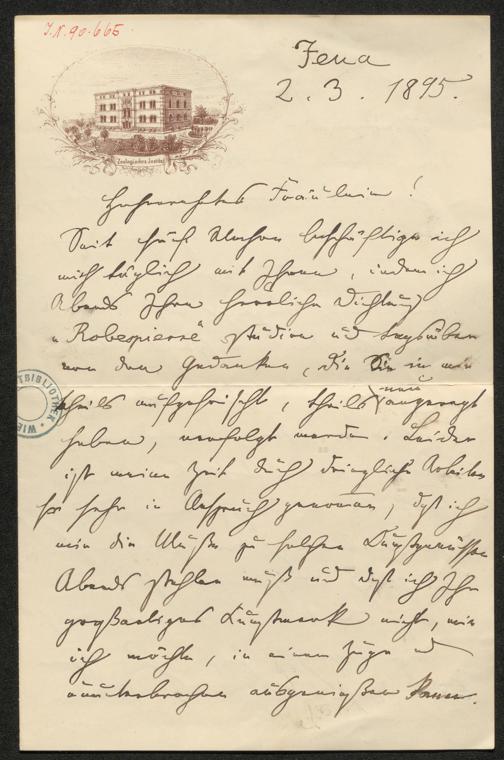 I.N. 90.665
Jena
2. 3. 1895.
Zoologisches Institut
Hochverehrtes Fräulein!
Seit fünf Wochen beschäftige ich
mich täglich mit Ihnen, indem ich
Abends Ihre herrliche Dichtung
"Robespierre" studire und tagsüber
von den Gedanken, die Sie in mir
theils aufgefrischt, theils neu angeregt
haben, verfolgt werde. Leider
ist meine Zeit durch dringliche Arbeiten
so sehr in Anspruch genommen, daß ich
mir die Muße zu solchen Kunstgenüssen
Abends stehlen muß und daß ich Ihr
großartiges Kunstwerk nicht, wie
ich möchte, in einem Zuge und
ununterbrochen ausgenießen kann.
BIBLIOTHEK
WIEN